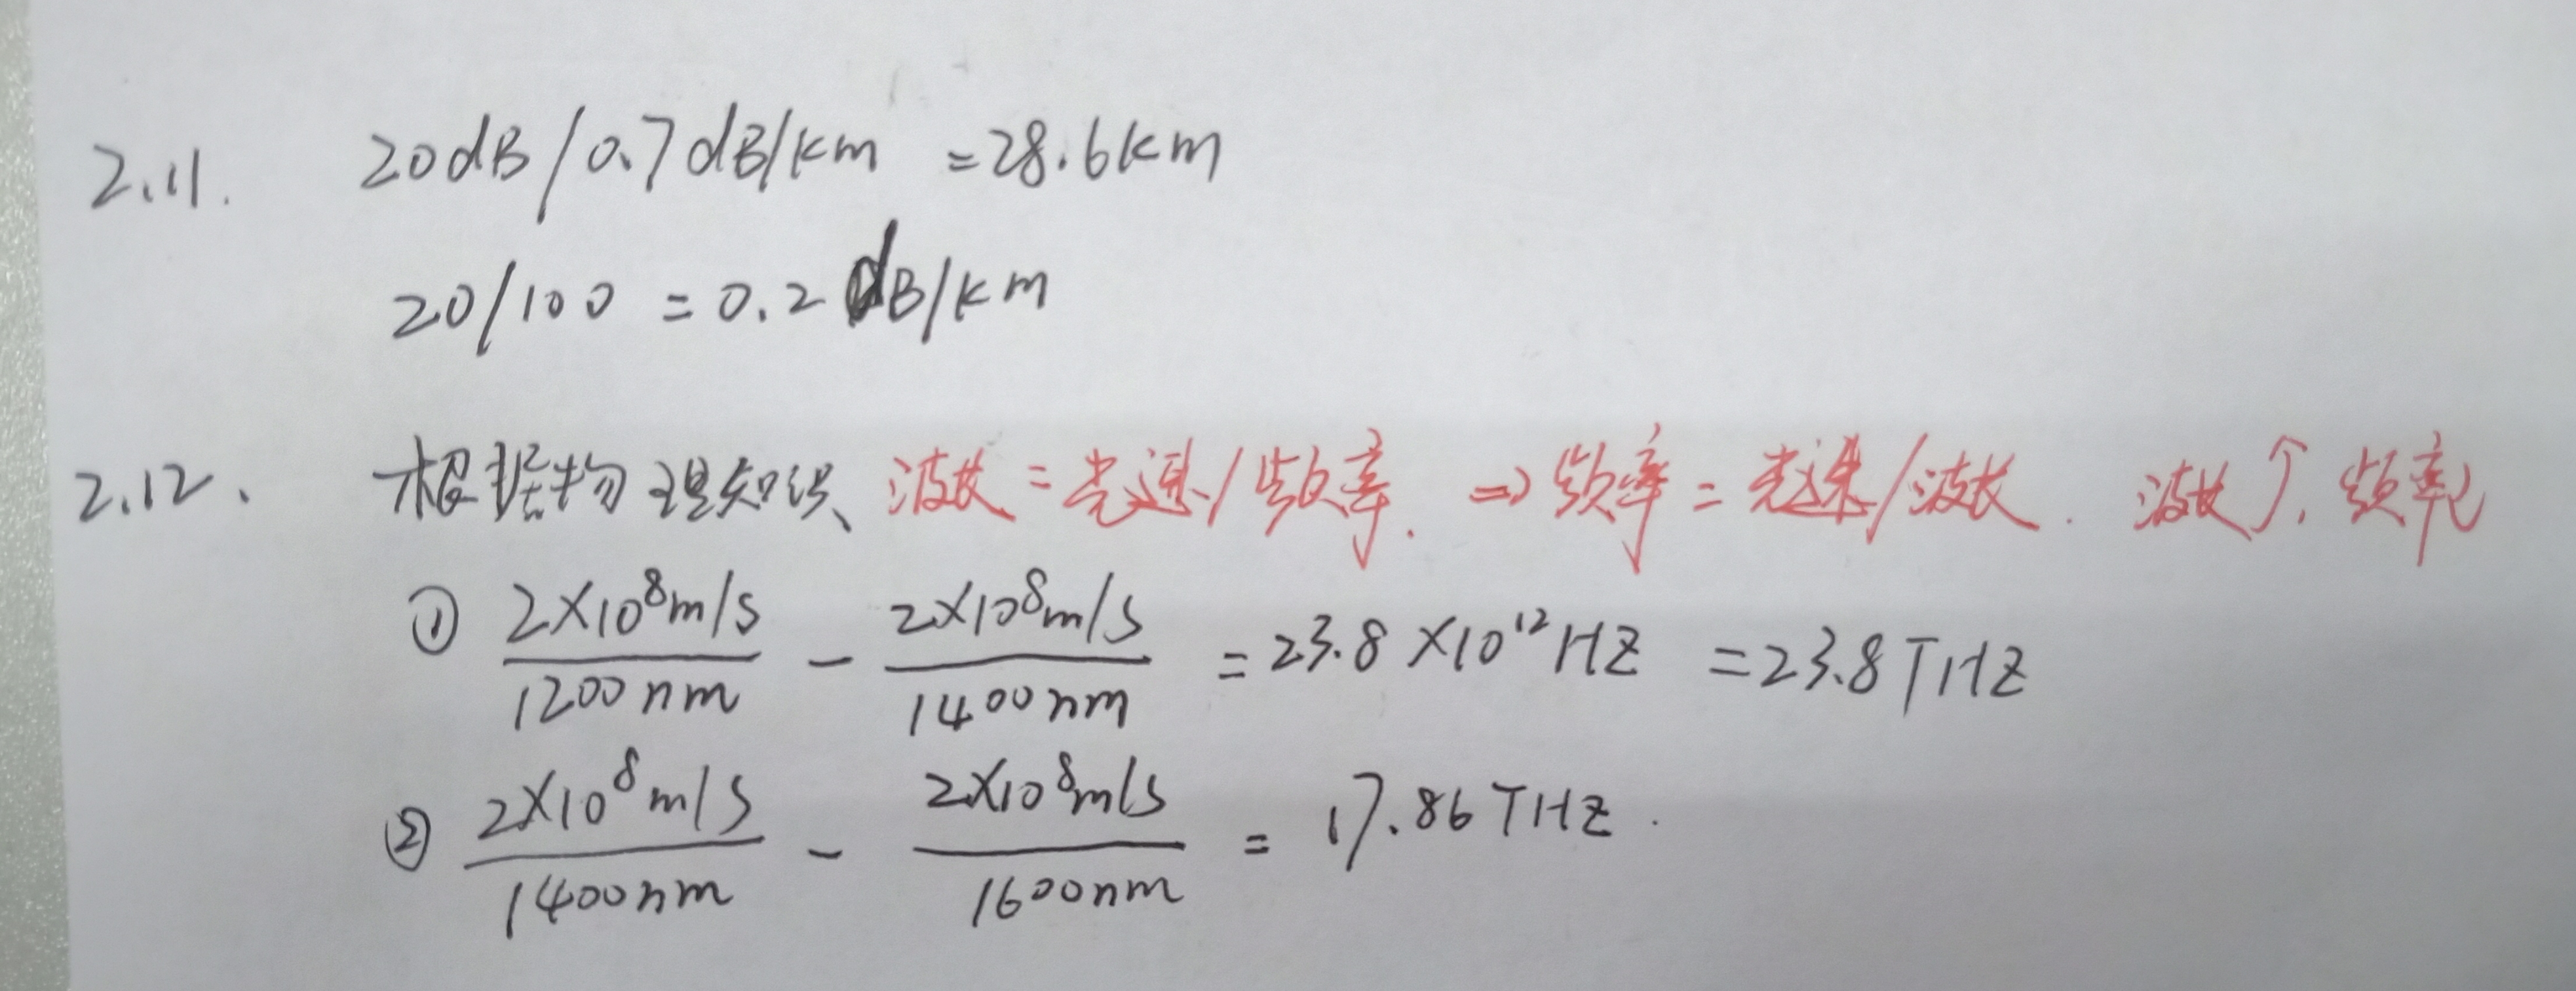 2.11. 20dB/0.7dB/km =28.6km
20/100 = 0.2 dB/km
2.12. 根据物理知识、波长=光速/频率. => 频率=光速/波长. 波长↑, 频率↓
① 2×10⁸m/s/1200nm - 2×10⁸m/s/1400nm = 23.8×10¹²HZ = 23.8THZ
② 2×10⁸m/s/1400nm - 2×10⁸m/s/1600nm = 17.86THZ.